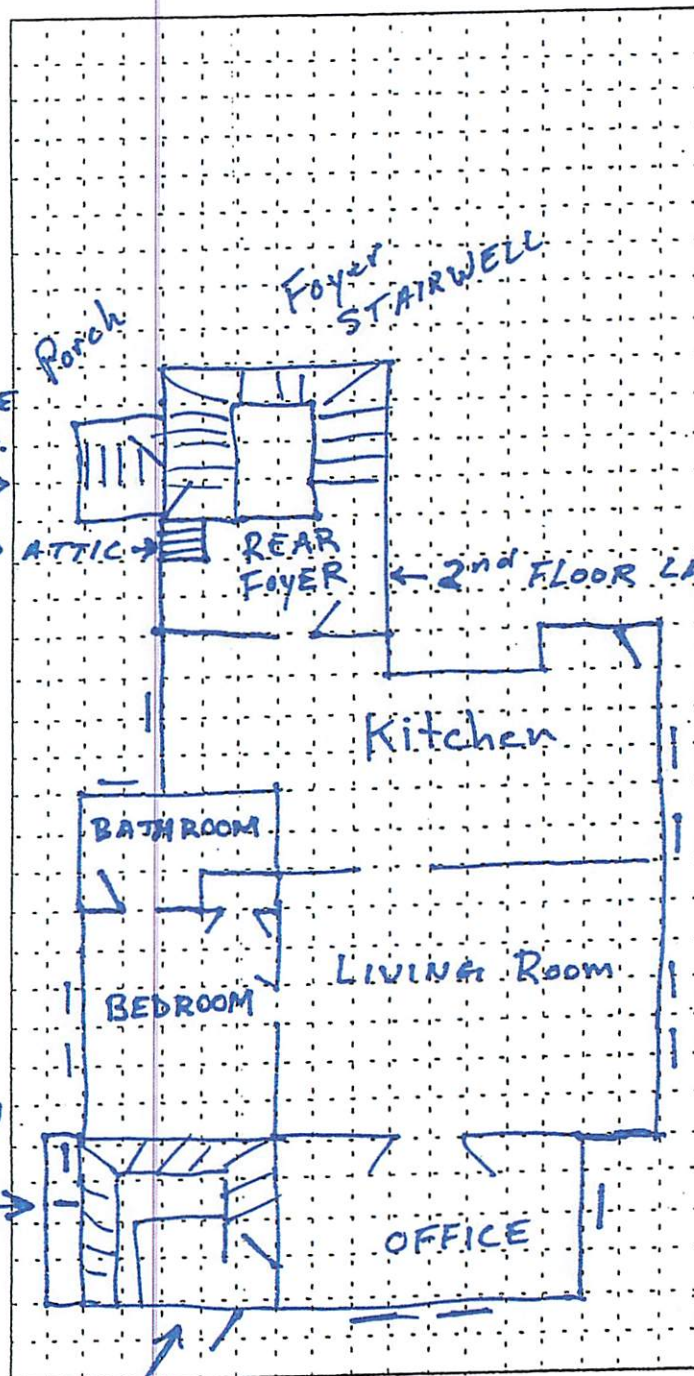 Foyer
STAIRWELL
Porch
ATTIC →
REAR
FOYER
← 2nd FLOOR LA
Kitchen
BATHROOM
LIVING Room
BEDROOM
OFFICE